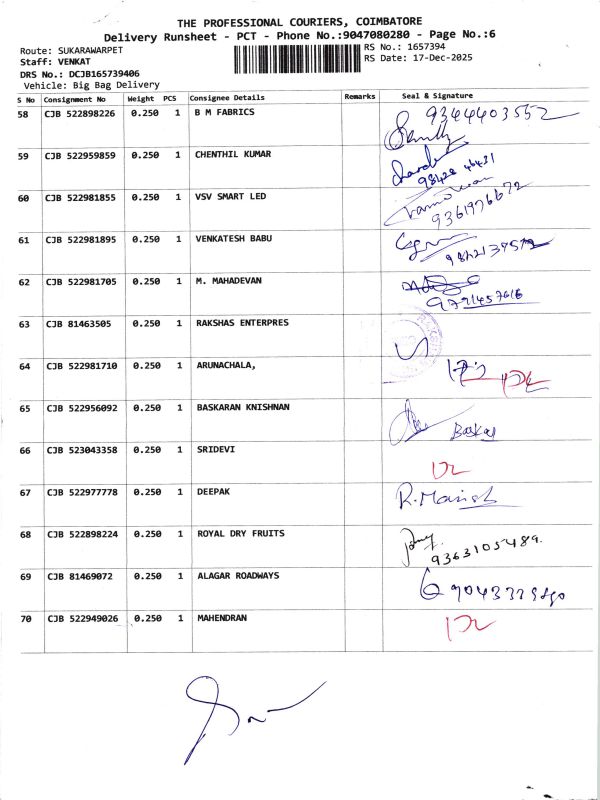 THE PROFESSIONAL COURIERS, COIMBATORE
Delivery Runsheet - PCT - Phone No.:9047080280 - Page No.:6
Route: SUKARAWARPET
RS No.: 1657394
Staff: VENKAT
RS Date: 17-Dec-2025
DRS No.: DCJB165739406
Vehicle: Big Bag Delivery
S No Consignment No Weight PCS Consignee Details Remarks Seal & Signature
58 CJB 522898226 0.250 1 B M FABRICS 9344403552
59 CJB 522959859 0.250 1 CHENTHIL KUMAR
60 CJB 522981855 0.250 1 VSV SMART LED 9361976672
61 CJB 522981895 0.250 1 VENKATESH BABU
62 CJB 522981705 0.250 1 M. MAHADEVAN 9791457616
63 CJB 81463505 0.250 1 RAKSHAS ENTERPRES
64 CJB 522981710 0.250 1 ARUNACHALA,
65 CJB 522956092 0.250 1 BASKARAN KNISHNAN Baskar
66 CJB 523043358 0.250 1 SRIDEVI
67 CJB 522977778 0.250 1 DEEPAK R. Manish
68 CJB 522898224 0.250 1 ROYAL DRY FRUITS 9363105489.
69 CJB 81469072 0.250 1 ALAGAR ROADWAYS
70 CJB 522949026 0.250 1 MAHENDRAN